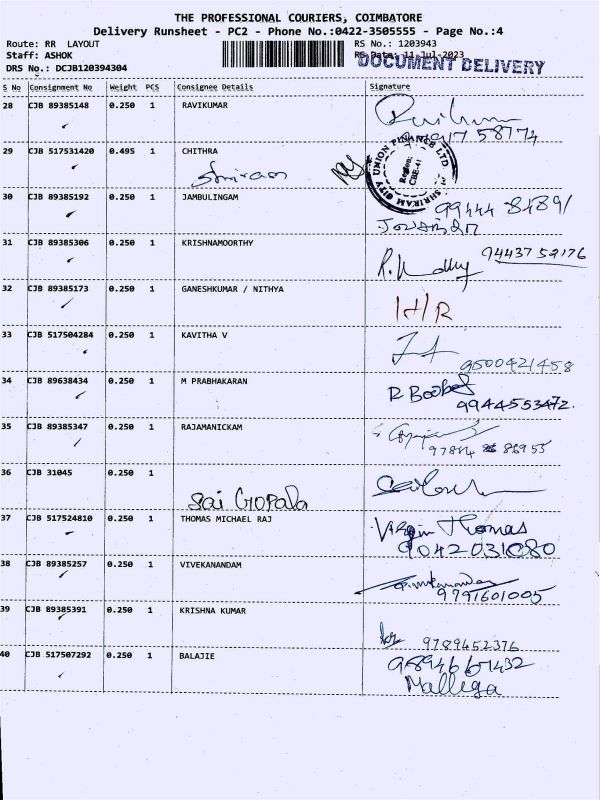 THE PROFESSIONAL COURIERS, COIMBATORE
Delivery Runsheet - PC2 - Phone No.:0422-3505555 - Page No.:4
Route: RR LAYOUT
RS No.: 1203943
Staff: ASHOK
RS Date: 11-Jul-2023
DOCUMENT DELIVERY
DRS No.: DCJB120394304
S No Consignment No Weight PCS Consignee Details Signature
28 CJB 89385148 0.250 1 RAVIKUMAR
58774
29 CJB 517531420 0.495 1 CHITHRA
Shriram
SHRIRAM CITY UNION FINANCE LTD
Region:
CBE-41
30 CJB 89385192 0.250 1 JAMBULINGAM
99444 84891
31 CJB 89385306 0.250 1 KRISHNAMOORTHY
94437 52176
32 CJB 89385173 0.250 1 GANESHKUMAR / NITHYA
I/R
33 CJB 517504284 0.250 1 KAVITHA V
9500421458
34 CJB 89638434 0.250 1 M PRABHAKARAN
R Boobal
9944553472.
35 CJB 89385347 0.250 1 RAJAMANICKAM
36 CJB 31045 0.250 1
Sai Gopala
37 CJB 517524810 0.250 1 THOMAS MICHAEL RAJ
Virgin Thomas
9042031080
38 CJB 89385257 0.250 1 VIVEKANANDAM
9791601005
39 CJB 89385391 0.250 1 KRISHNA KUMAR
9789452376
40 CJB 517507292 0.250 1 BALAJIE
9894661432
Malliga